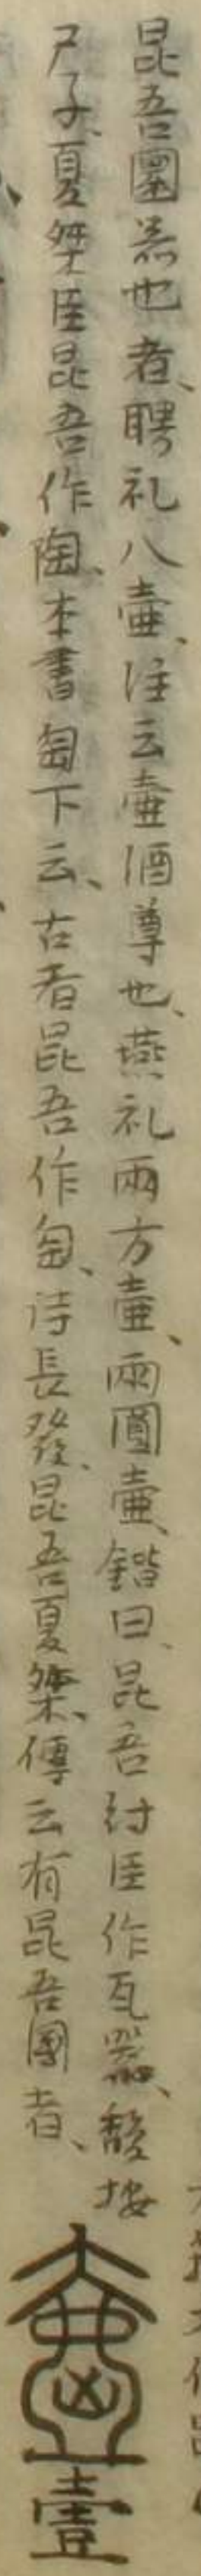 昆吾圜器也者、聘礼八壷、注云壷酒尊也、燕礼兩方壷、兩圓壷、鍇曰、昆吾紂臣作瓦器、馥按
尸子、夏桀臣昆吾作陶、本書匋下云、古者昆吾作匋、詩長發、昆吾夏桀、傳云有昆吾國者、
壹